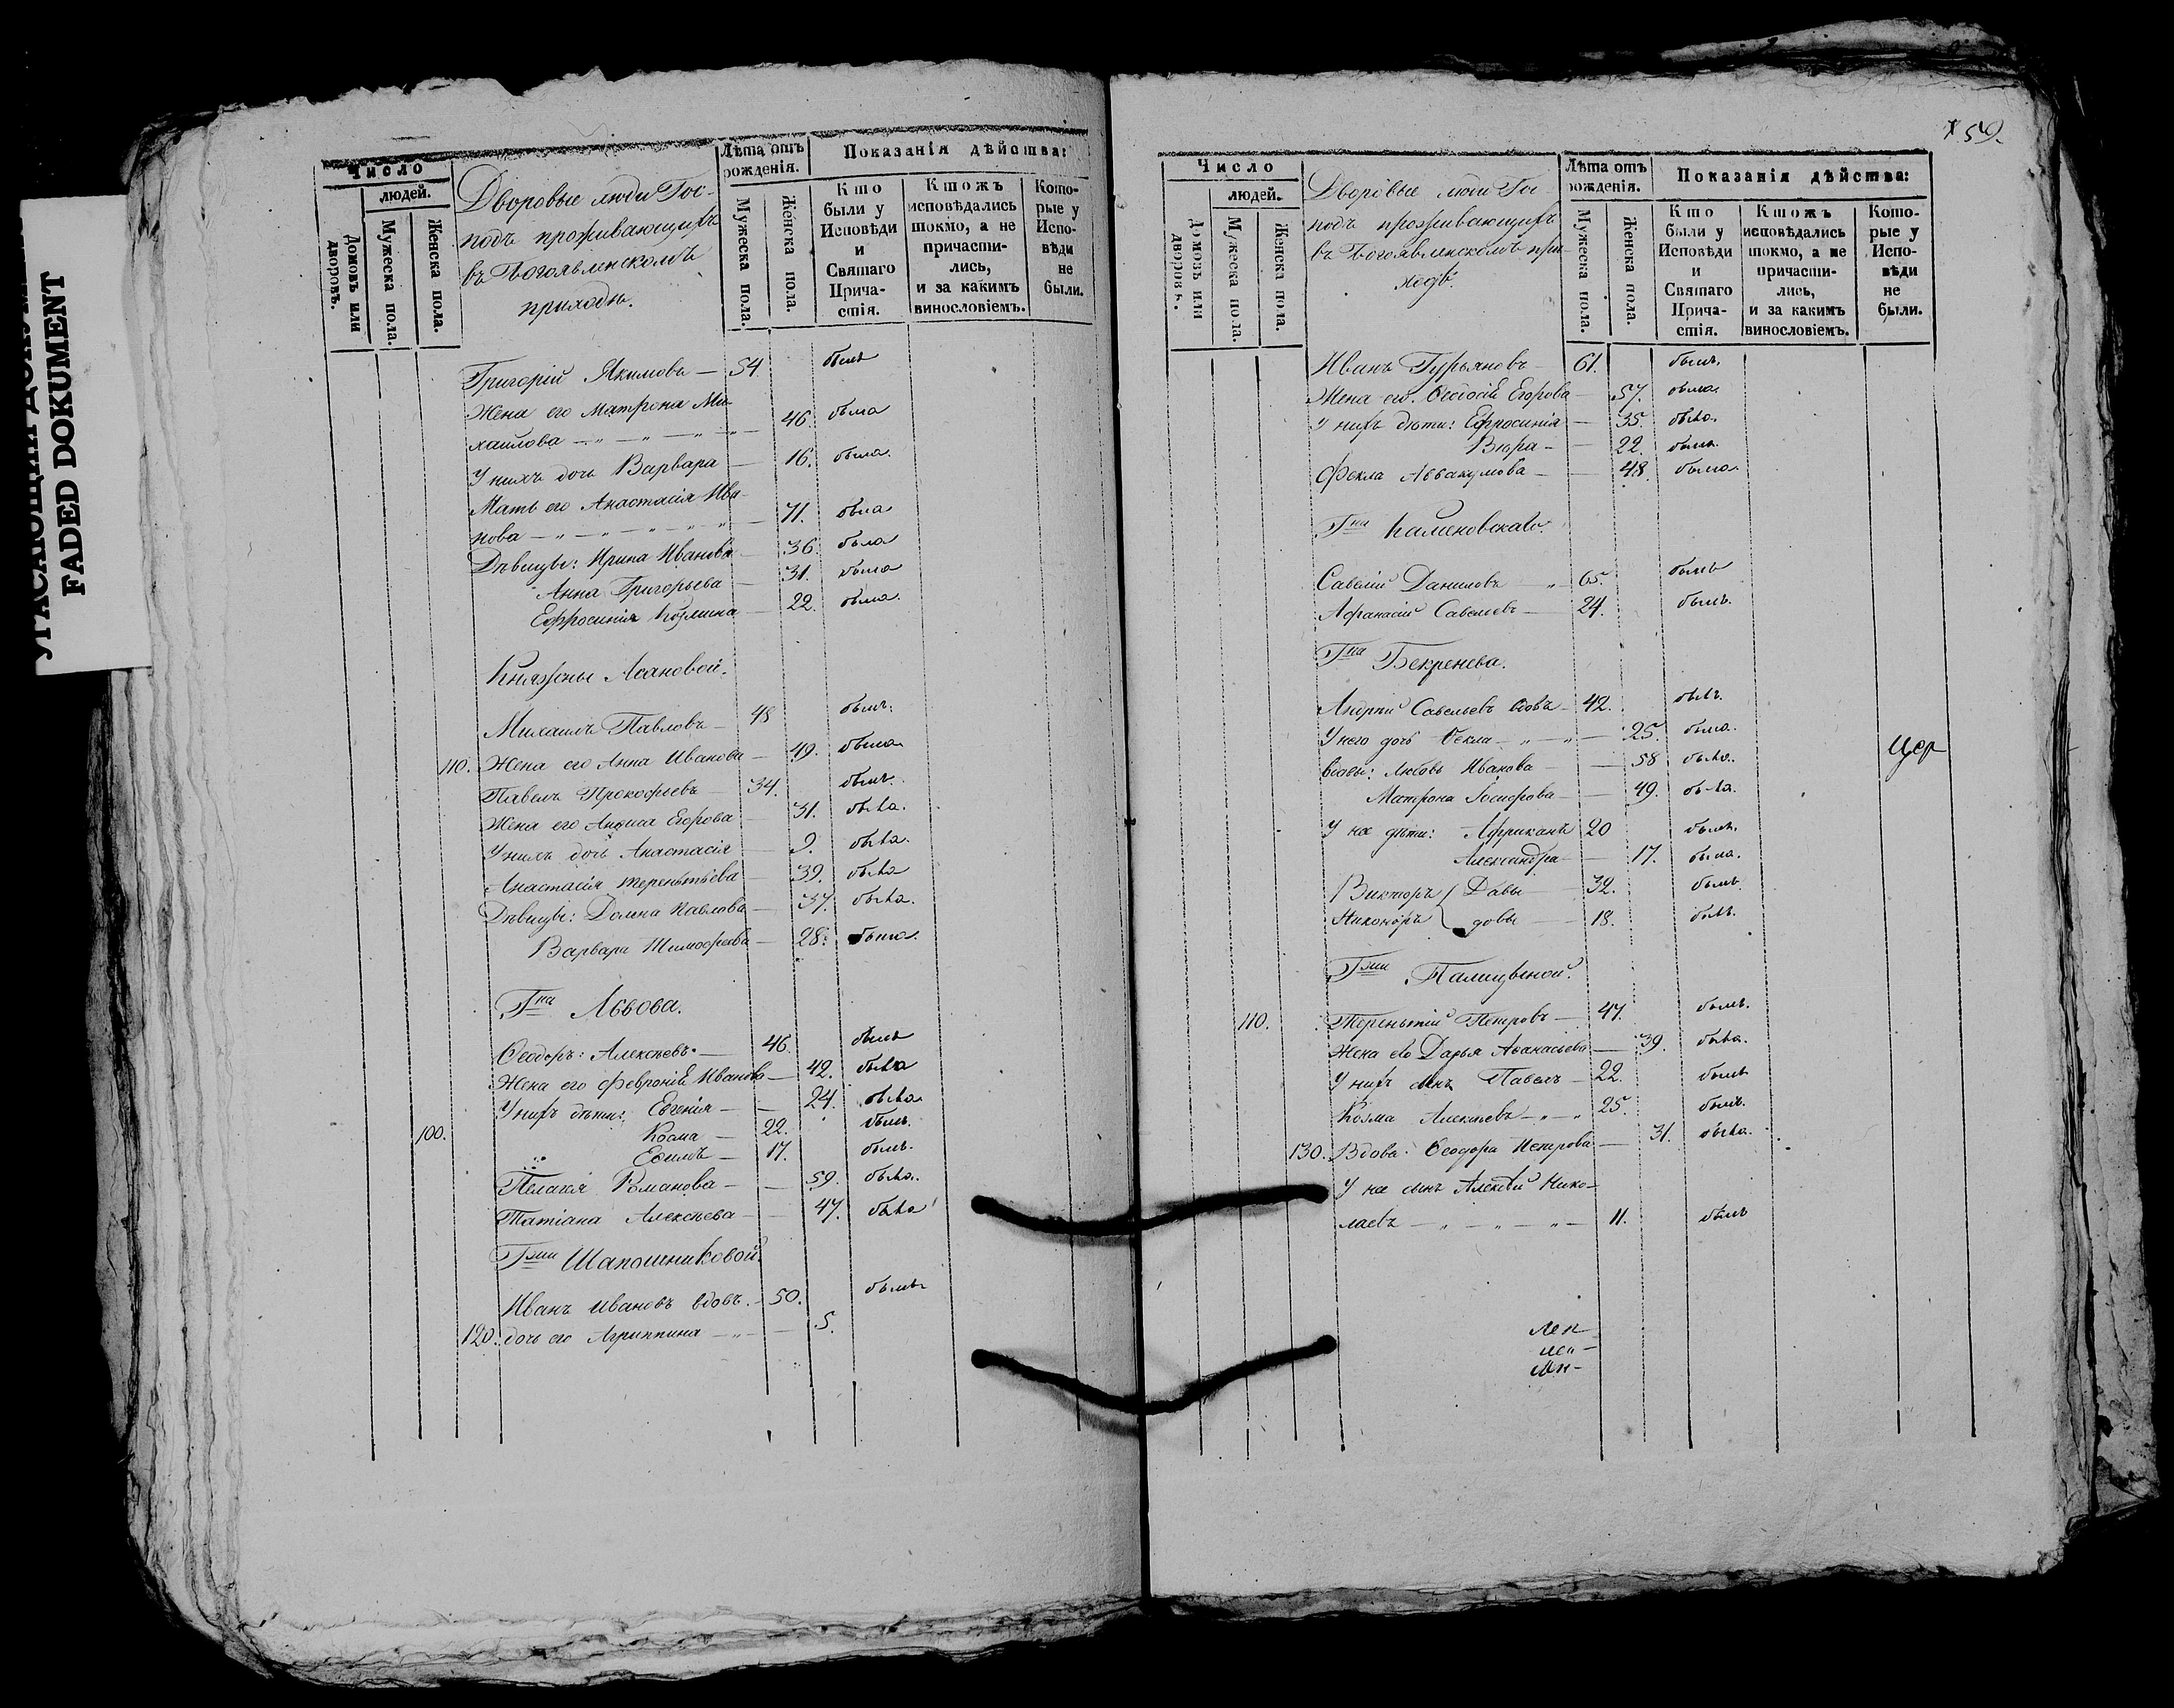 FADED DOKUMENT
Число
людей.
Домовъ или дворовъ.
Мужеска пола.
Женска пола.
Дворовые люди Гос-
подъ проживающихъ
въ Богоявленскомъ
приходѣ.
Лѣта отъ рожденія.
Мужеска пола.
Женска пола.
Показанія дѣйства:
Кто были у Исповѣди и Святаго Прича- стія.
Ктожъ исповѣдались токмо, а не причасти- лись, и за какимъ винословіемъ.
Кото- рые у Испо- вѣди не были.
Григорій Якимовъ — 54. былъ
Жена его Матрона Ми-
хаилова — 46. была
У нихъ дочь Варвара — 16. была.
Мать его Анастасія Ива-
нова — 71. была
Дѣвицы: Ирина Иванова — 36. была
Анна Григорьева — 31. была
Ефросинія Козмина — 22. была.
Княжны Асановой.
Михаилъ Павловъ — 48 былъ.
110. Жена его Анна Иванова — 49. была
Павелъ Прокофьевъ — 34. былъ.
Жена его Анфиса Егорова — 31. была.
У нихъ дочь Анастасія — 9. была.
Анастасія Терентьева — 39. была
Дѣвицы: Домна Павлова — 37. была.
Варвара Тимофѣева — 28. была.
Гна Львова.
Ѳеодоръ Алексѣевъ — 46. былъ
Жена его Февронія Иванова — 42. была
У нихъ дѣти: Евгенія — 24. была
100. Козма — 22. былъ.
Ефимъ — 17. былъ.
Пелагея Романова — 59. была.
Татіана Алексѣева — 47. была
Гжи Шапошниковой.
Иванъ Ивановъ вдовъ. — 50. былъ
120. дочь его Агриппина — 5.
59.
Число
людей.
Домовъ или дворовъ.
Мужеска пола.
Женска пола.
Дворовые люди Гос
подъ проживающихъ
въ Богоявленскомъ при-
ходѣ.
Лѣта отъ рожденія.
Мужеска пола.
Женска пола.
Показанія дѣйства:
Кто были у Исповѣди и Святаго Прича- стія.
Ктожъ исповѣдались токмо, а не причасти- лись, и за какимъ винословіемъ.
Кото- рые у Испо- вѣди не были.
Иванъ Гурьяновъ — 61. былъ.
Жена его Ѳеодосія Егорова — 57. была.
У нихъ дѣти: Ефросинія — 35. была.
Вѣра — 22. была.
Фекла Аввакумова — 48. была.
Гна Калиновскаго.
Савелій Даниловъ — 65. былъ
Афанасій Савельевъ — 24. былъ.
Гна Бекренева.
Андрей Савельевъ вдовъ — 42. былъ.
У него дочь Ѳекла — 25. была.
вдовы: Любовь Иванова — 58 была.
Матрона Іосифова — 49. была.
У нее дѣти: Африканъ 20 былъ.
Александра — 17. была.
Викторъ Давы — 32. былъ.
Никоноръ довы — 18. былъ.
Гжи Палицыной.
110. Терентій Петровъ — 47. былъ.
Жена его Дарья Аѳанасьева — 39. была.
У нихъ сынъ Павелъ — 22. былъ
Козма Алексѣевъ — 25. былъ.
130. Вдова Ѳеодора Петрова — 31. была.
У нее сынъ Алексѣй Нико-
лаевъ — 11. былъ